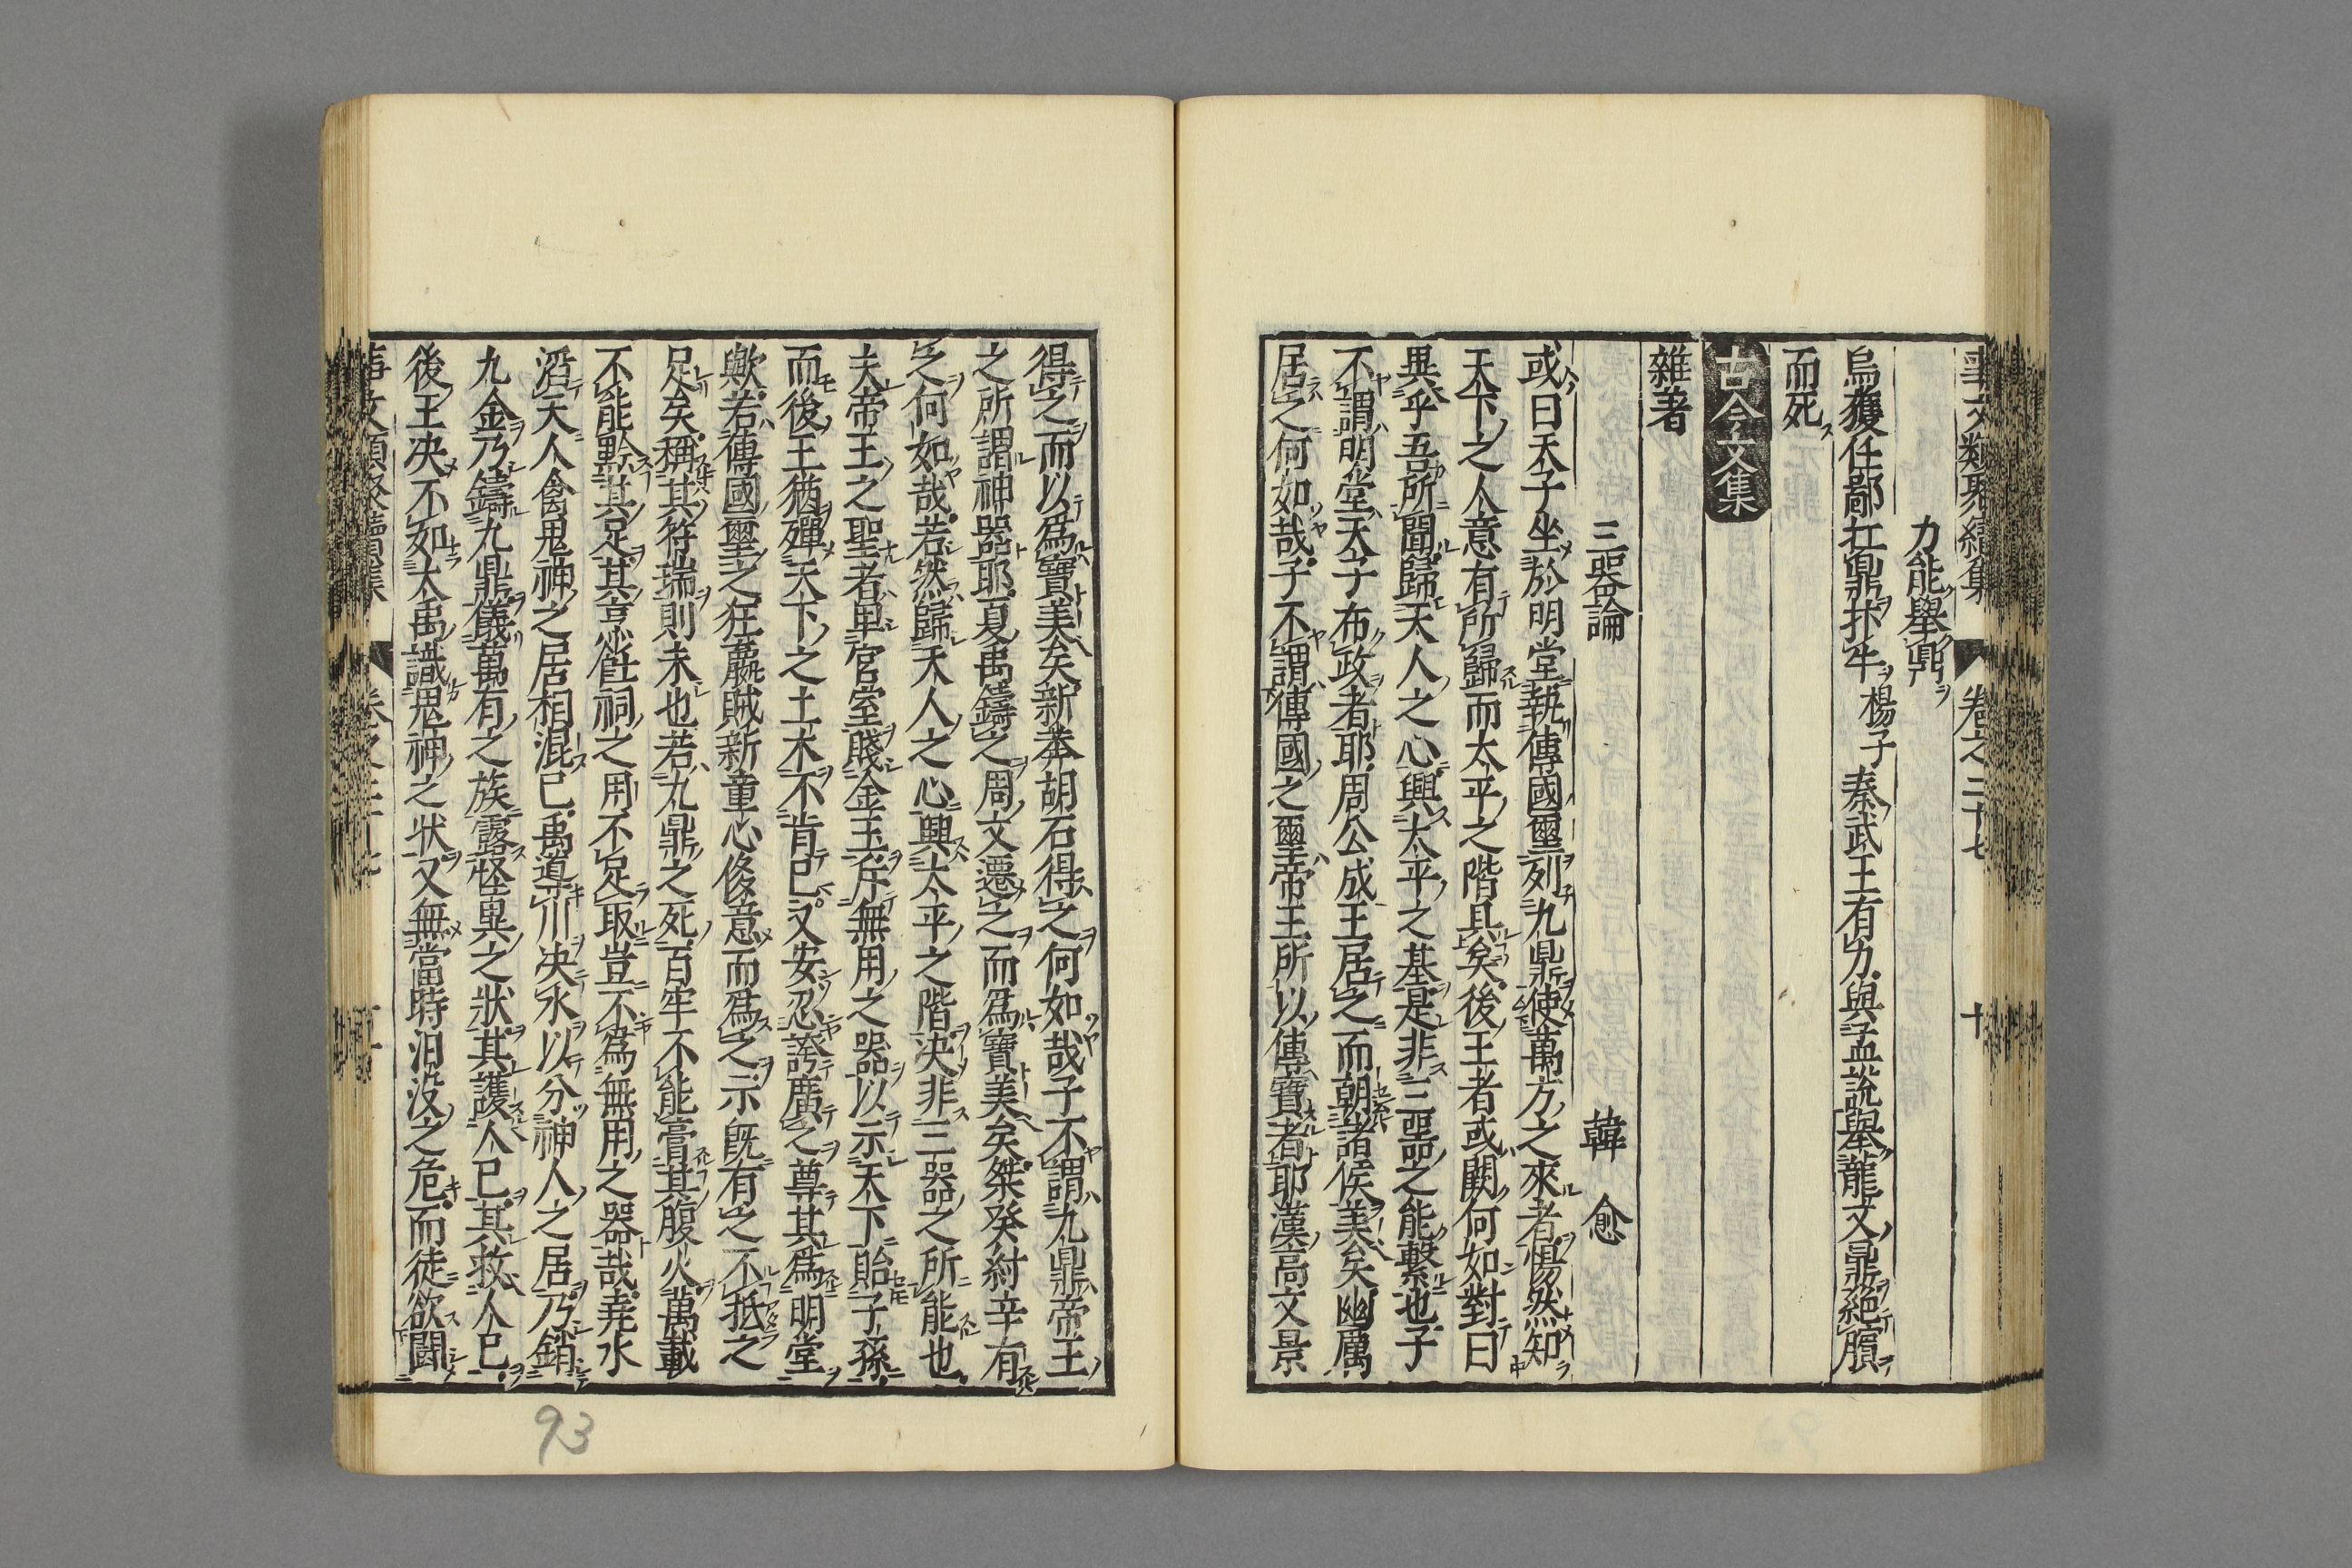 事文類聚續集 卷之二十七 十
力能舉鼎
烏獲任鄙扛鼎抃牛 楊子 秦武王有力與孟說舉龍文鼎絕臏
而死
古今文集
雜著
三器論 韓 愈
或曰天子坐於明堂執傳國璽列九鼎使萬方之來者惕然知
天下之人意有所歸而太平之階具矣後王者或闕何如對曰
異乎吾所聞歸天人之心興太平之基是非三器之能繫也子
不謂明堂天子布政者耶周公成王居之而朝諸侯美矣幽厲
居之何如哉子不謂傳國之璽帝王所以傳寶者耶漢高文景
得之而以爲寶美矣新莽胡石得之何如哉子不謂九鼎帝王
之所謂神器耶夏禹鑄之周文遷之而爲寶美矣桀癸紂辛有
之何如哉若然歸天人之心興太平之階決非三器之所能也
夫帝王之聖者卑宮室賤金玉斥無用之器以示天下貽子孫
而後王猶殫天下之土木不肯已又安忍誇廣之尊其爲明堂
歟若傳國璽之狂嬴賊新童心侈意而爲之示旣有之不抵之
足矣稱其符瑞則未也若九鼎之死百牢不能膏其腹火萬載
不能黔其足其烹飪祠之用不足取豈不爲無用之器哉堯水
滔天人禽鬼神之居相混已禹導川决水以分神人之居乃銷
九金乃鑄九鼎儀萬有之族露怪異之狀其護人已其救人已
後王决不如太禹識鬼神之狀又無當時汨沒之危而徒欲鬭
事文類聚續集 卷之二十七 十一
93